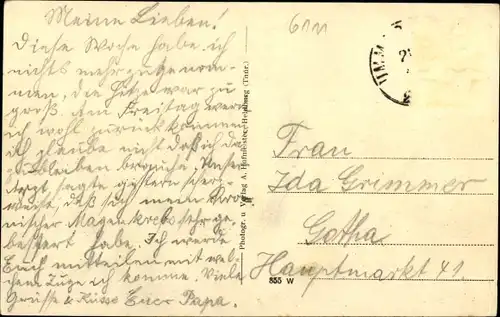 Meine Lieben!
Diese Woche habe ich
nichts mehr zugenom-
men, die Hetze war zu
groß. Am Freitag werde
ich wohl zurückkommen
ich glaube nicht daß ich da
zu bleiben brauche. Unser
Arzt sagte gestern
daß sich mein
nischer Magenkrebs sehr ge-
bessert habe. Ich werde
Euch mitteilen mit wel-
chem Zuge ich komme. Viele
Grüsse & Küsse Euer Papa.
6111
Photogr. u. Verlag A. Hofmeister, Heldburg (Thür.)
Frau
Ida Grimmer
Gotha
Hauptmarkt 41.
855 W